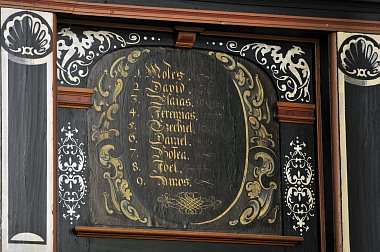 1. Moses.
2. David.
3. Esaias.
4. Jeremias.
5. Ezechiel.
6. Daniel.
7. Hosea.
8. Joel.
9. Amos.